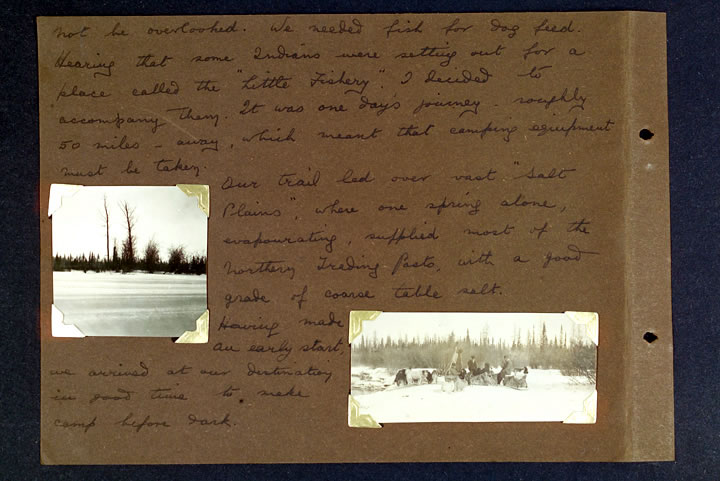 not be overlooked. We needed fish for dog feed.
Hearing that some Indians were setting out for a
place called the "Little Fishery". I decided to
accompany them. It was one day's journey - roughly
50 miles - away, which meant that camping equipment
must be taken.
Our trail led over vast "Salt
Plains", where one spring alone,
evapourating, supplied most of the
Northern Trading Posts, with a good
grade of coarse table salt.
Having made
an early start,
we arrived at our destination
in good time to make
camp before dark.